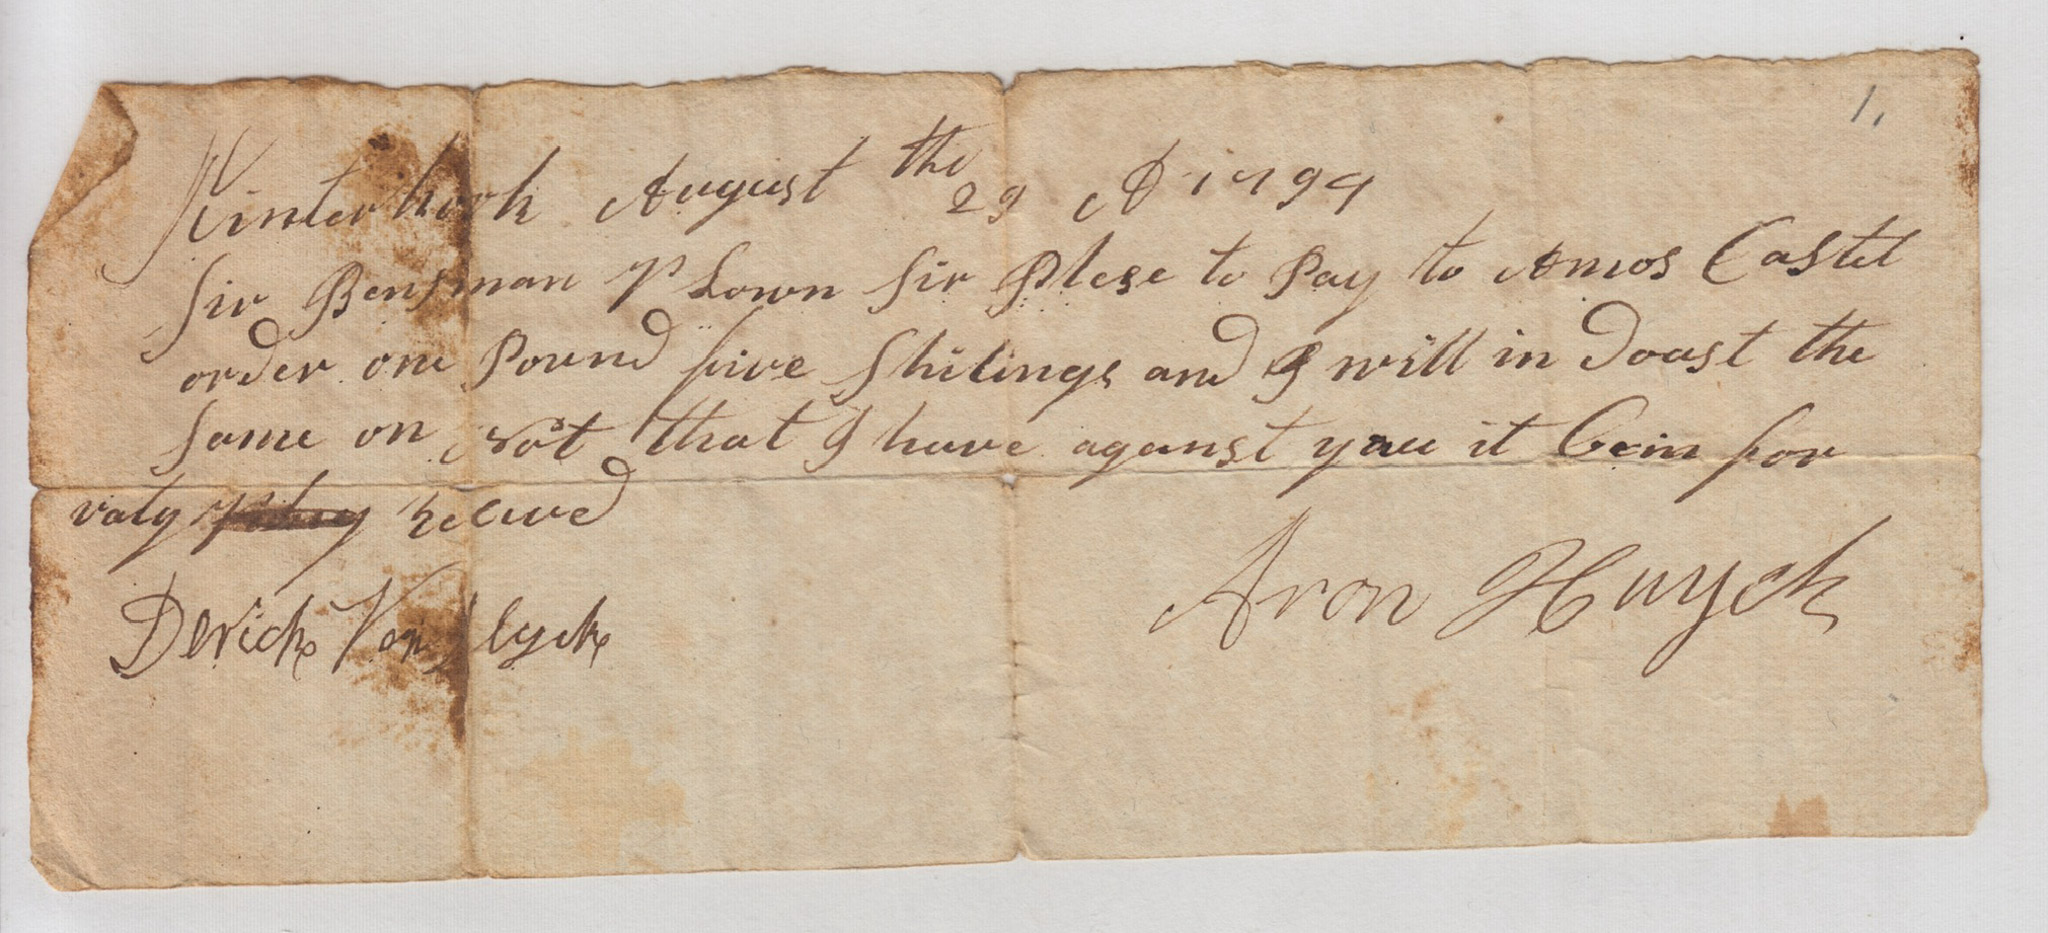 1.
Kinterhook August the 29 A 1794
Sir Benjman P Lown Sir Plese to Pay to Amos Castel
order one Pound five Shilings and I will in Doast the
Same on Not that I have aganst you it bein for
valy receved
Aron Huyck
Derick Van Slyck